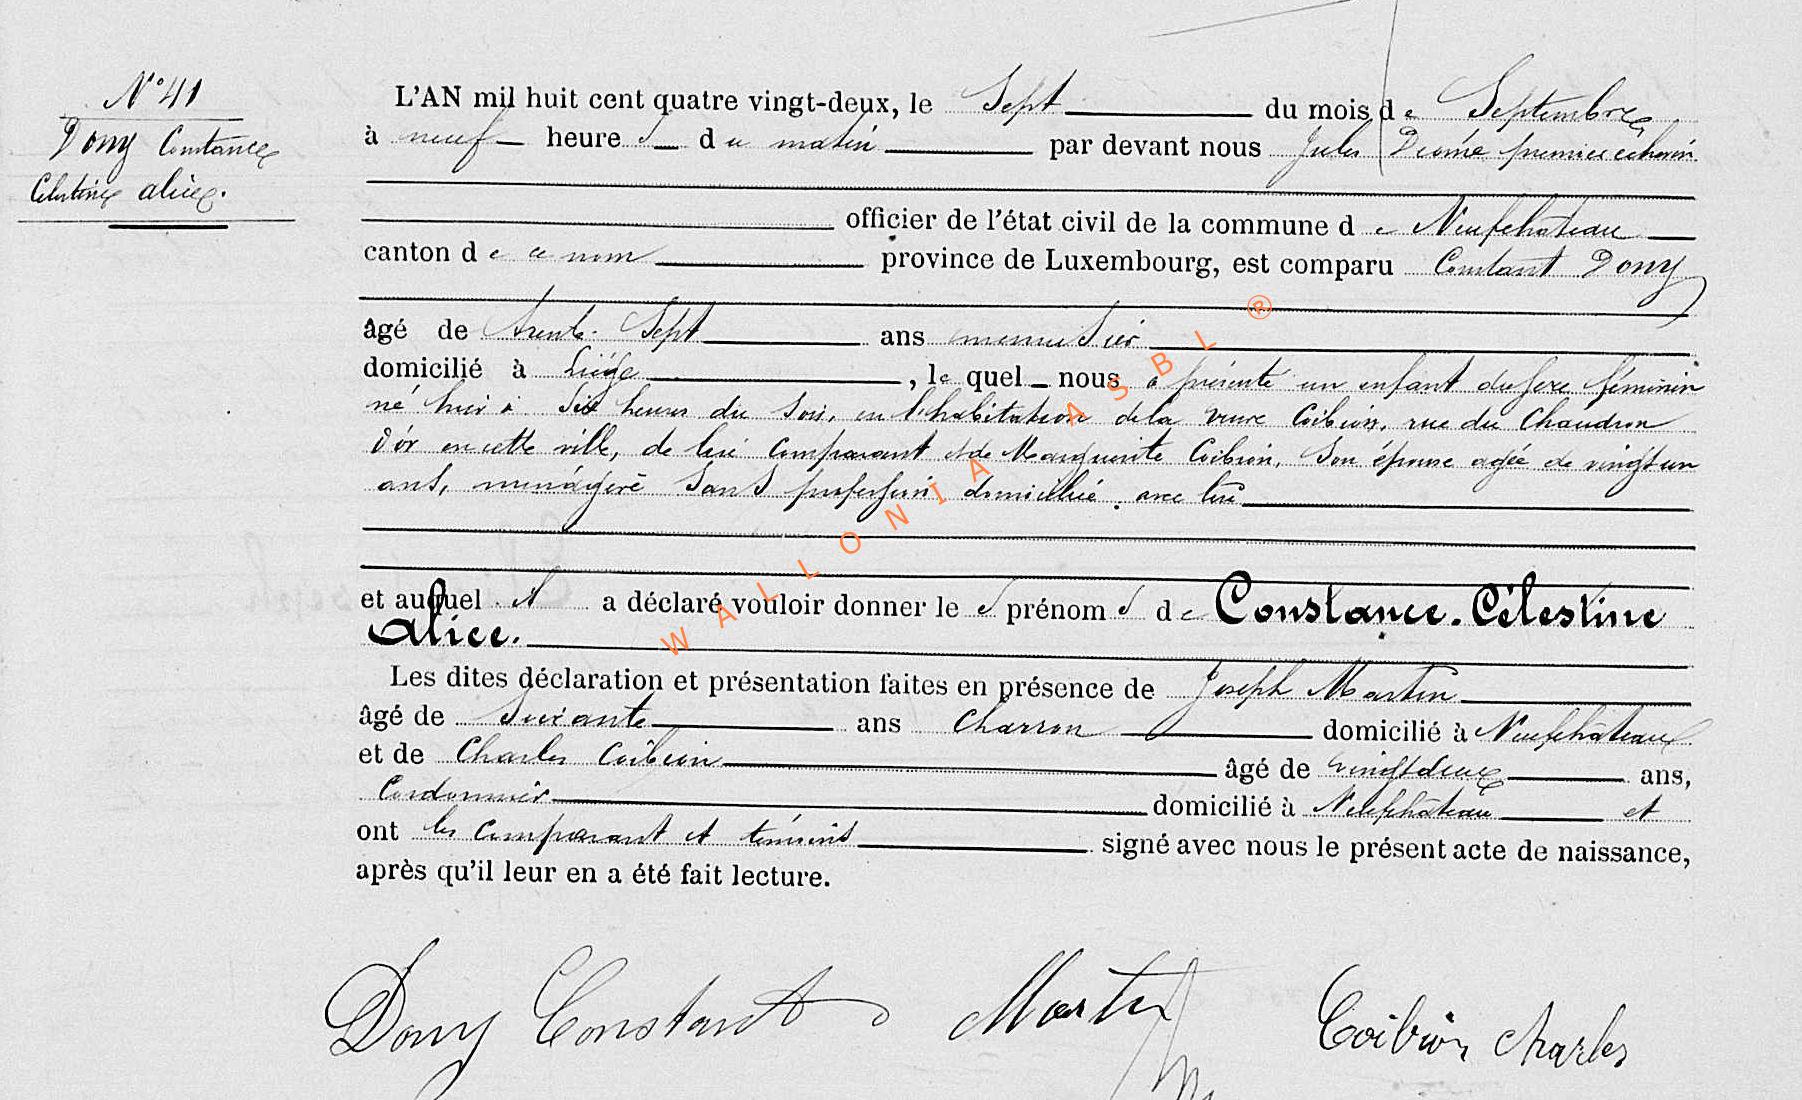 N° 41
Dony Constance
Célestine Alice.
L'AN mil huit cent quatre vingt-deux, le Sept du mois de Septembre
à neuf heures du matin par devant nous Jules premier échevin
officier de l'état civil de la commune de Neufchâteau
canton de ce nom province de Luxembourg, est comparu Constant Dony
âgé de trente-Sept ans menuisier
domicilié à Liége, lequel nous a présenté un enfant du sexe féminin
né hier à Six heures du Soir, en l'habitation de la veuve Coibion, rue du Chaudron
d'or en cette ville, de lui comparant et de Marguerite Coibion, Son épouse agée de vingt un
ans, ménagère Sans profession domiciliée avec lui
et auquel il a déclaré vouloir donner les prénoms de Constance. Célestine
Alice.
Les dites déclaration et présentation faites en présence de Joseph Martin
âgé de Soixante ans Charron domicilié à Neufchâteau
et de Charles Coibion âgé de vingt deux ans,
Cordonnier domicilié à Neufchâteau et
ont les comparant et témoins signé avec nous le présent acte de naissance,
après qu'il leur en a été fait lecture.
Dony Constant Martin Coibion Charles
WALLONIA ASBL ®